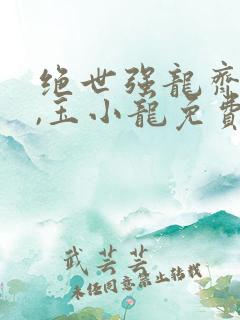 绝世强龍齊
,玉小龍免費
武芸芸
未經同意禁止转载